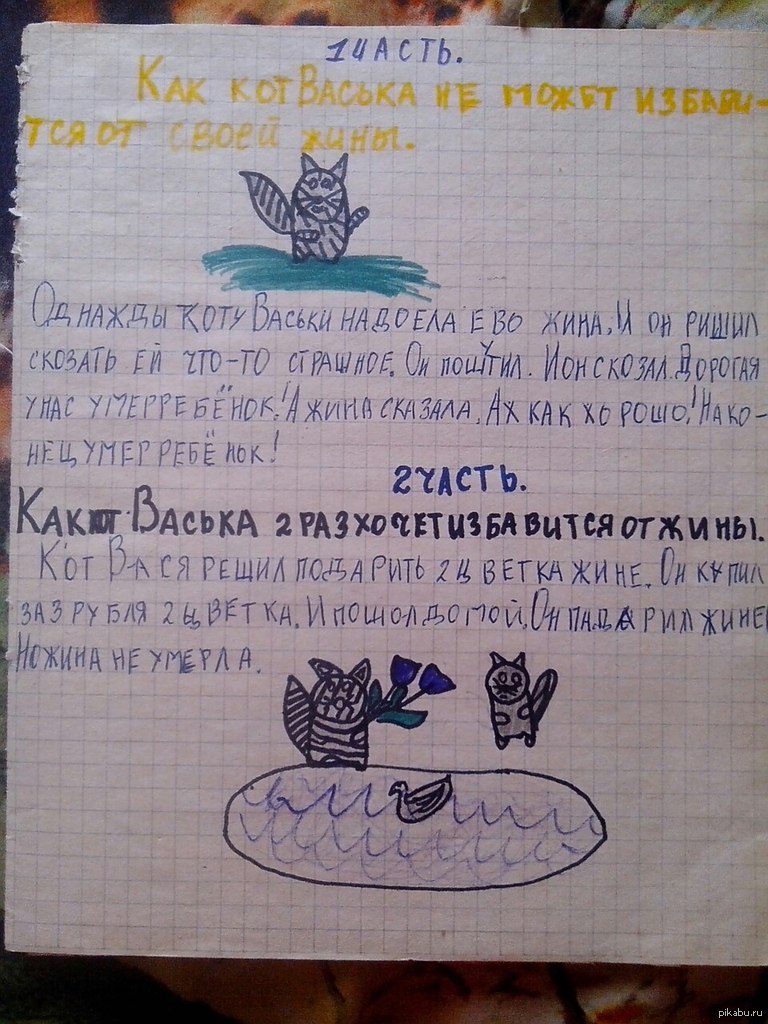 1 ЧАСТЬ.
КАК КОТ ВАСЬКА НЕ МОЖЕТ ИЗБАВИ-
ТСЯ ОТ СВОЕЙ ЖИНЫ.
ОДНАЖДЫ КОТУ ВАСЬКИ НАДОЕЛА ЕВО ЖИНА. И ОН РИШИЛ
СКОЗАТЬ ЕЙ ЧТО-ТО СТРАШНОЕ. ОН ПОШУТИЛ. И ОН СКОЗАЛ. ДОРОГАЯ
У НАС УМЕР РЕБЁНОК! А ЖИНА СКАЗАЛА. АХ КАК ХОРОШО! НАКО-
НЕЦ УМЕР РЕБЁНОК!
2 ЧАСТЬ.
КАК КОТ ВАСЬКА 2 РАЗ ХОЧЕТ ИЗБАВИТСЯ ОТ ЖИНЫ.
КОТ ВАСЯ РЕШИЛ ПОДАРИТЬ 2 ЦВЕТКА ЖИНЕ. ОН КУПИЛ
ЗА 3 РУБЛЯ 2 ЦВЕТКА. И ПОШОЛ ДОМОЙ. ОН ПАДАРИЛ ЖИНЕ
НО ЖИНА НЕ УМЕРЛА.
pikabu.ru